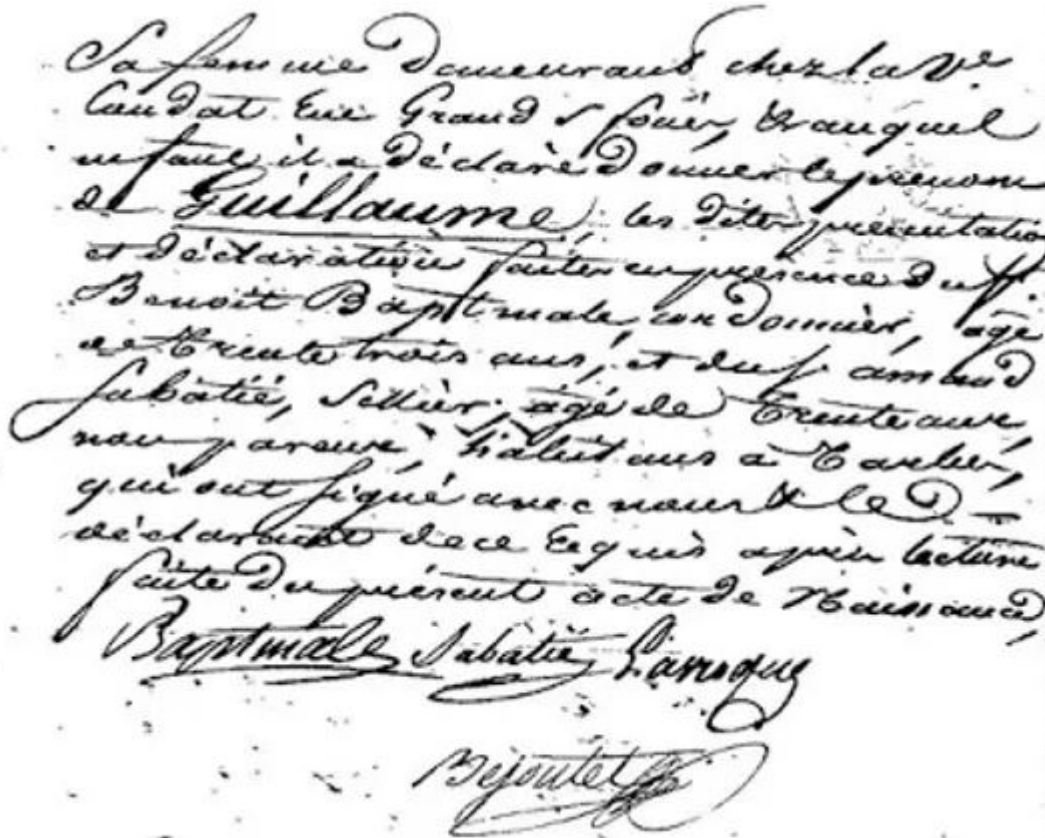 Sa femme Demeurant chez la Ve
Caudat Rue Grand & auquel
enfant il a Déclaré Donner le prenom
de Guillaume, les dites présentation
et déclaration faites en présence du Sr.
Benoit Baptmale, cordonnier, agé
de Trente trois ans, et du Sr. arnaud
Sabatié, Sellier, agé de Trente ans,
non parens, habitans a Tarbes,
qui ont signé avec nous & le D
déclarant de ce Requis après lecture
faite Du présent acte de Naissance,
Baptmale Sabatié Larroque
Bejoutet